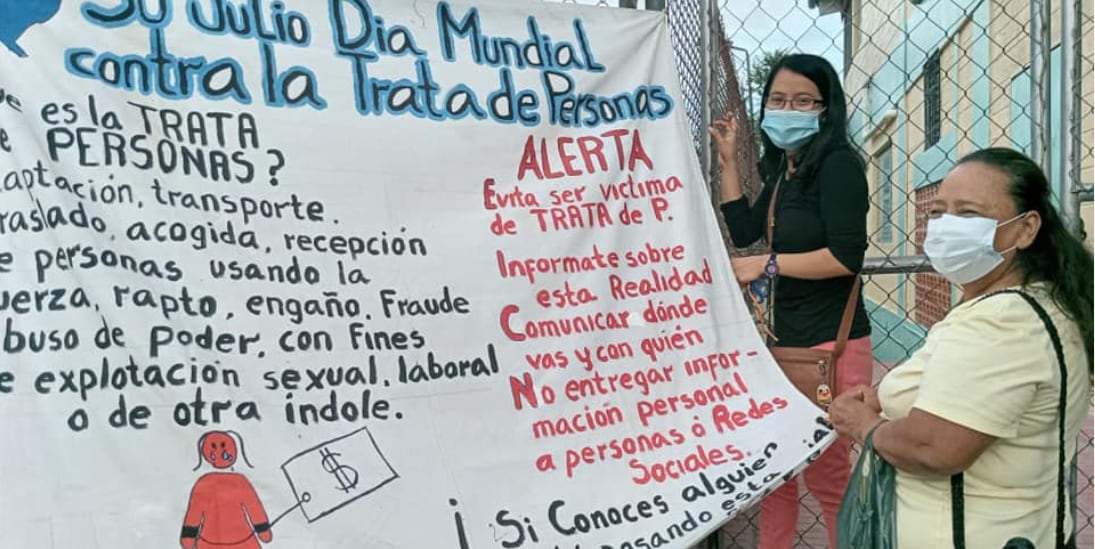 30 Julio Dia Mundial
contra la Trata de Personas
es la TRATA
PERSONAS?
aptación, transporte.
raslado, acogida, recepción
e personas usando la
uerza, rapto, engaño, Fraude
buso de Poder, con Fines
e explotación sexual, laboral
o de otra índole.
$
ALERTA
Evita ser victima
de TRATA de P.
Informate sobre
esta Realidad
Comunicar dónde
vas y con quién
No entregar infor-
mación personal
a personas ó Redes
Sociales.
¡Si Conoces alguien
pasando esta